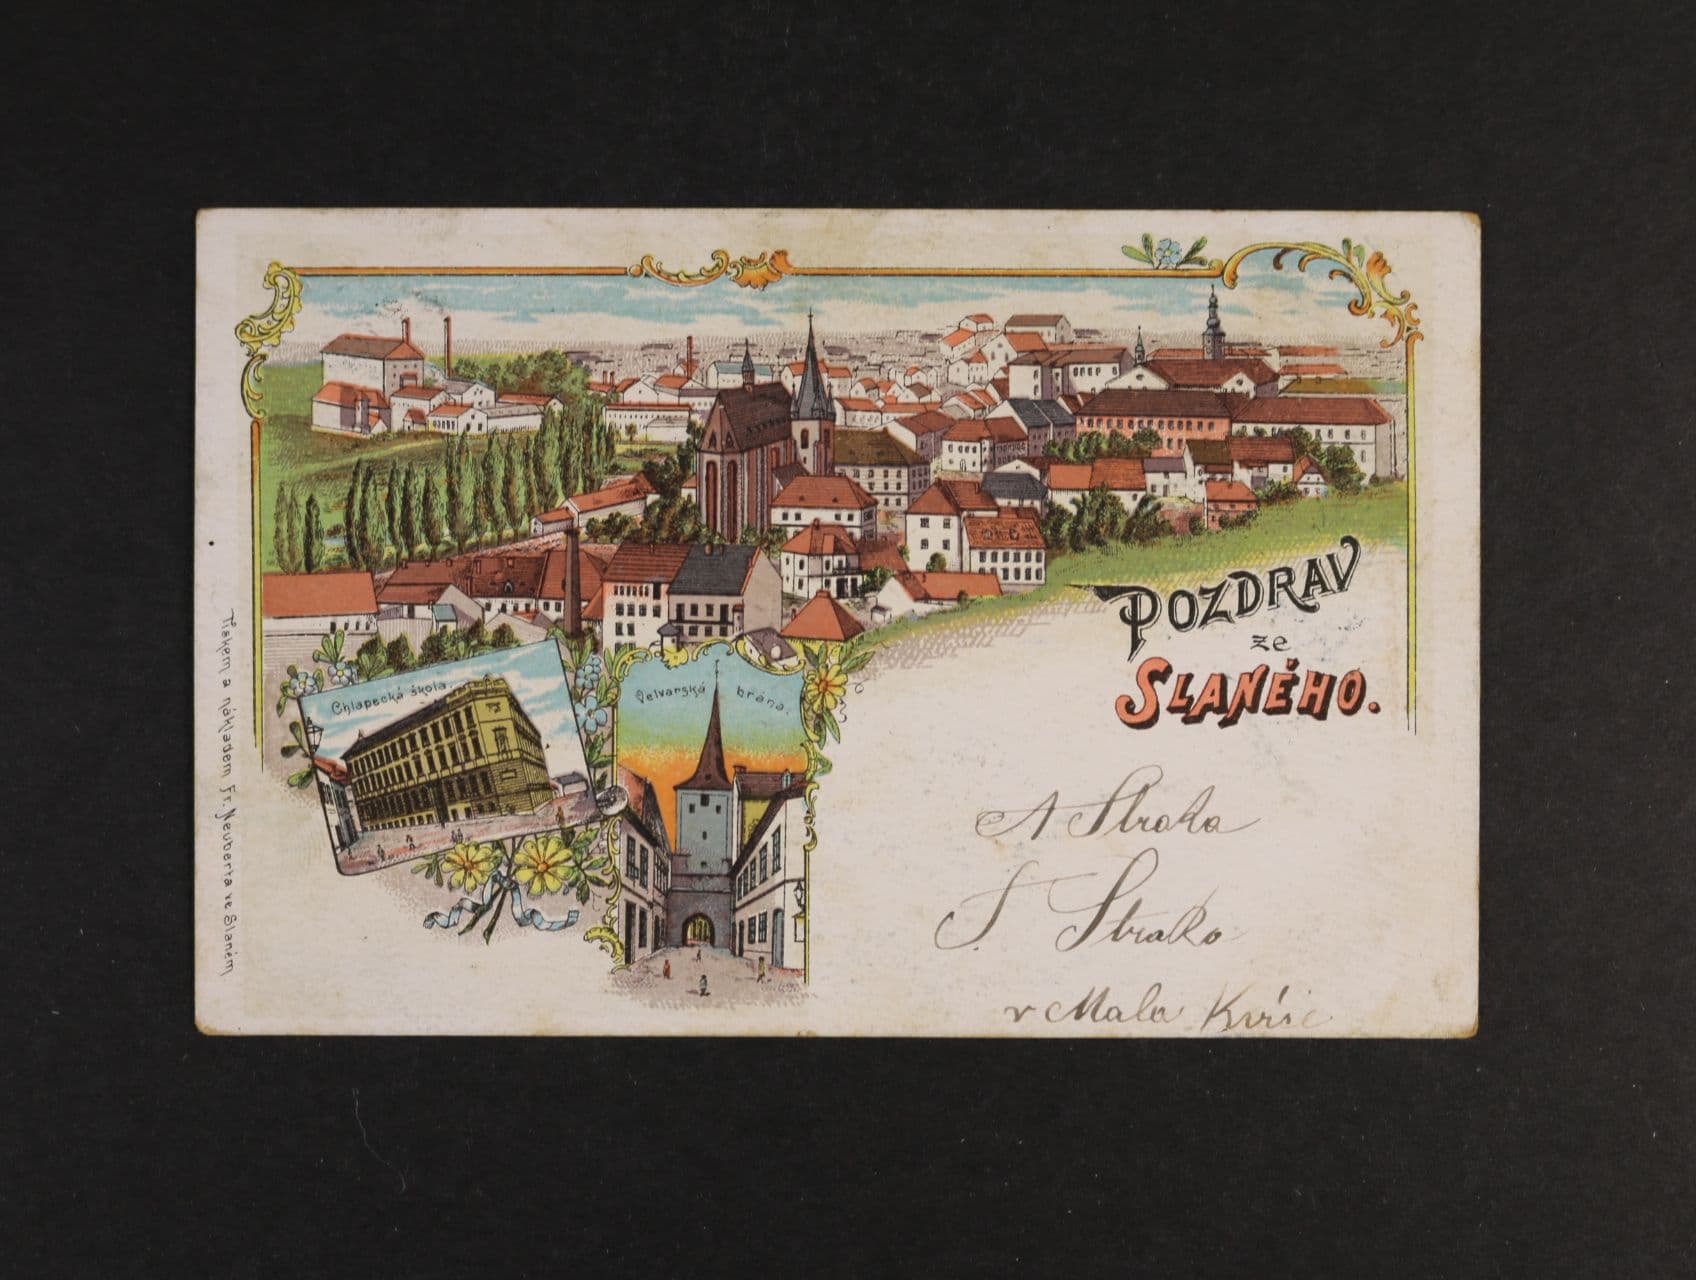 POZDRAV
ze
SLANÉHO.
Chlapecká škola.
Velvarská brána.
Tiskem a nákladem Fr. Neuberta ve Slaném
A Straka
J. Straka
v Mala Kvíc